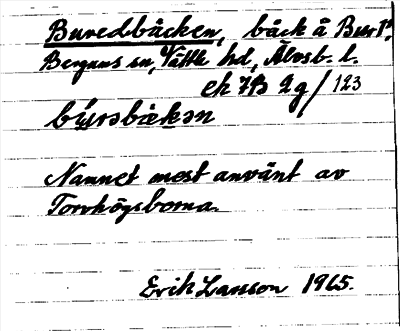 Buredbäcken, bäck å Bur 1²,
Bergums sn, Vättle hd, Älvsb. l.
ek 7B 2g/123
bu̇rəbækən
Namnet mest använt av
Torrhögsborna.
Erik Larsson 1965.